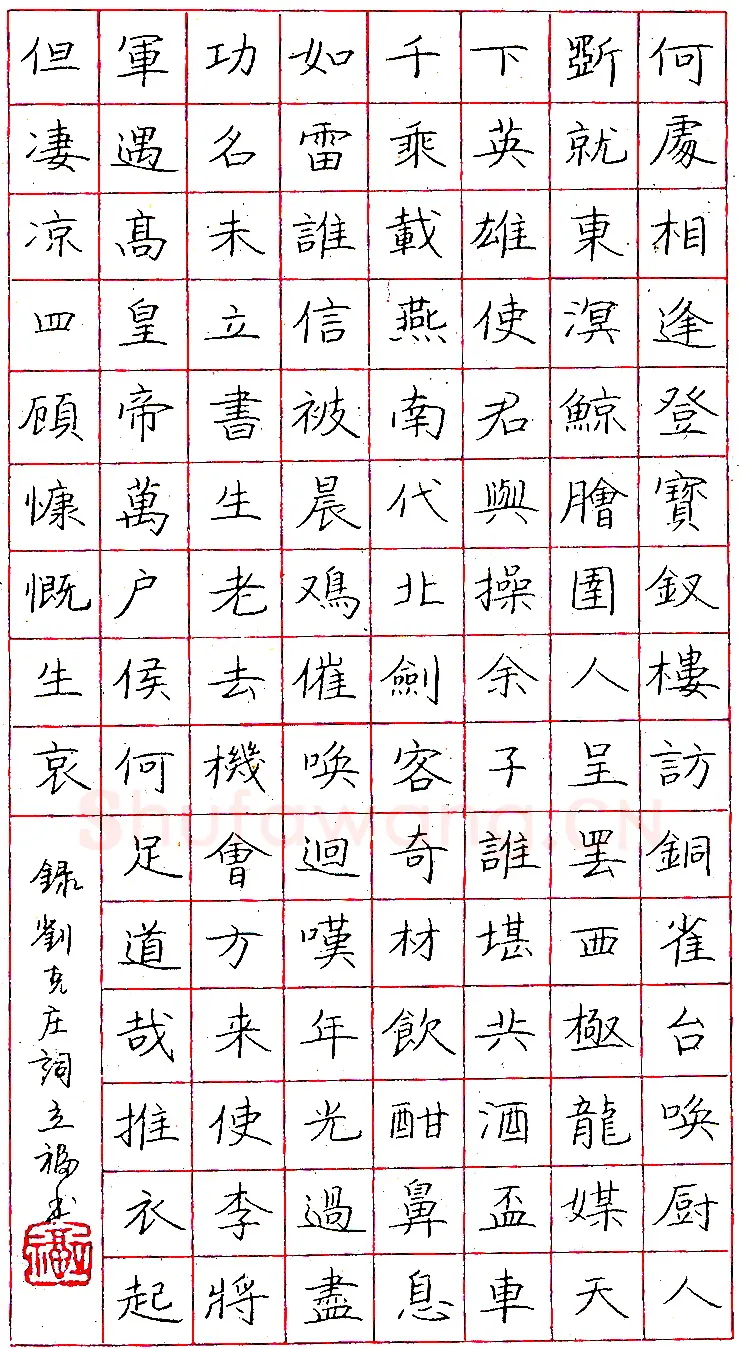 何處相逢登寶釵樓訪銅雀台喚厨人
斲就東溟鯨膾圍人呈罷西極龍媒天
下英雄使君與操余子誰堪共酒盃車
千乘載燕南代北劍客奇材飲酣鼻息
如雷誰信被晨鸡催喚迴嘆年光過盡
功名未立書生老去機會方来使李將
軍遇髙皇帝萬户侯何足道哉推衣起
但凄凉四顧慷慨生哀
録劉克庄詞立福书
Shufawang.CN